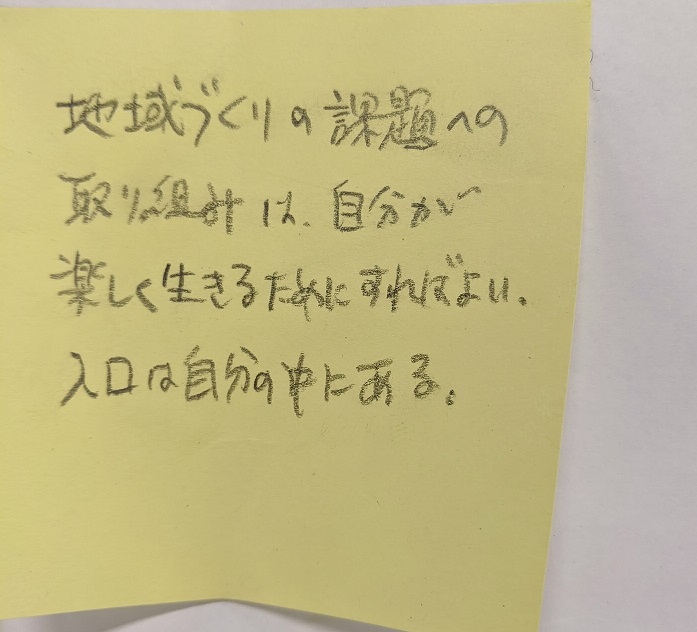 地域づくりの課題への
取り組みは、自分が
楽しく生きるためにすればよい。
入口は自分の中にある。